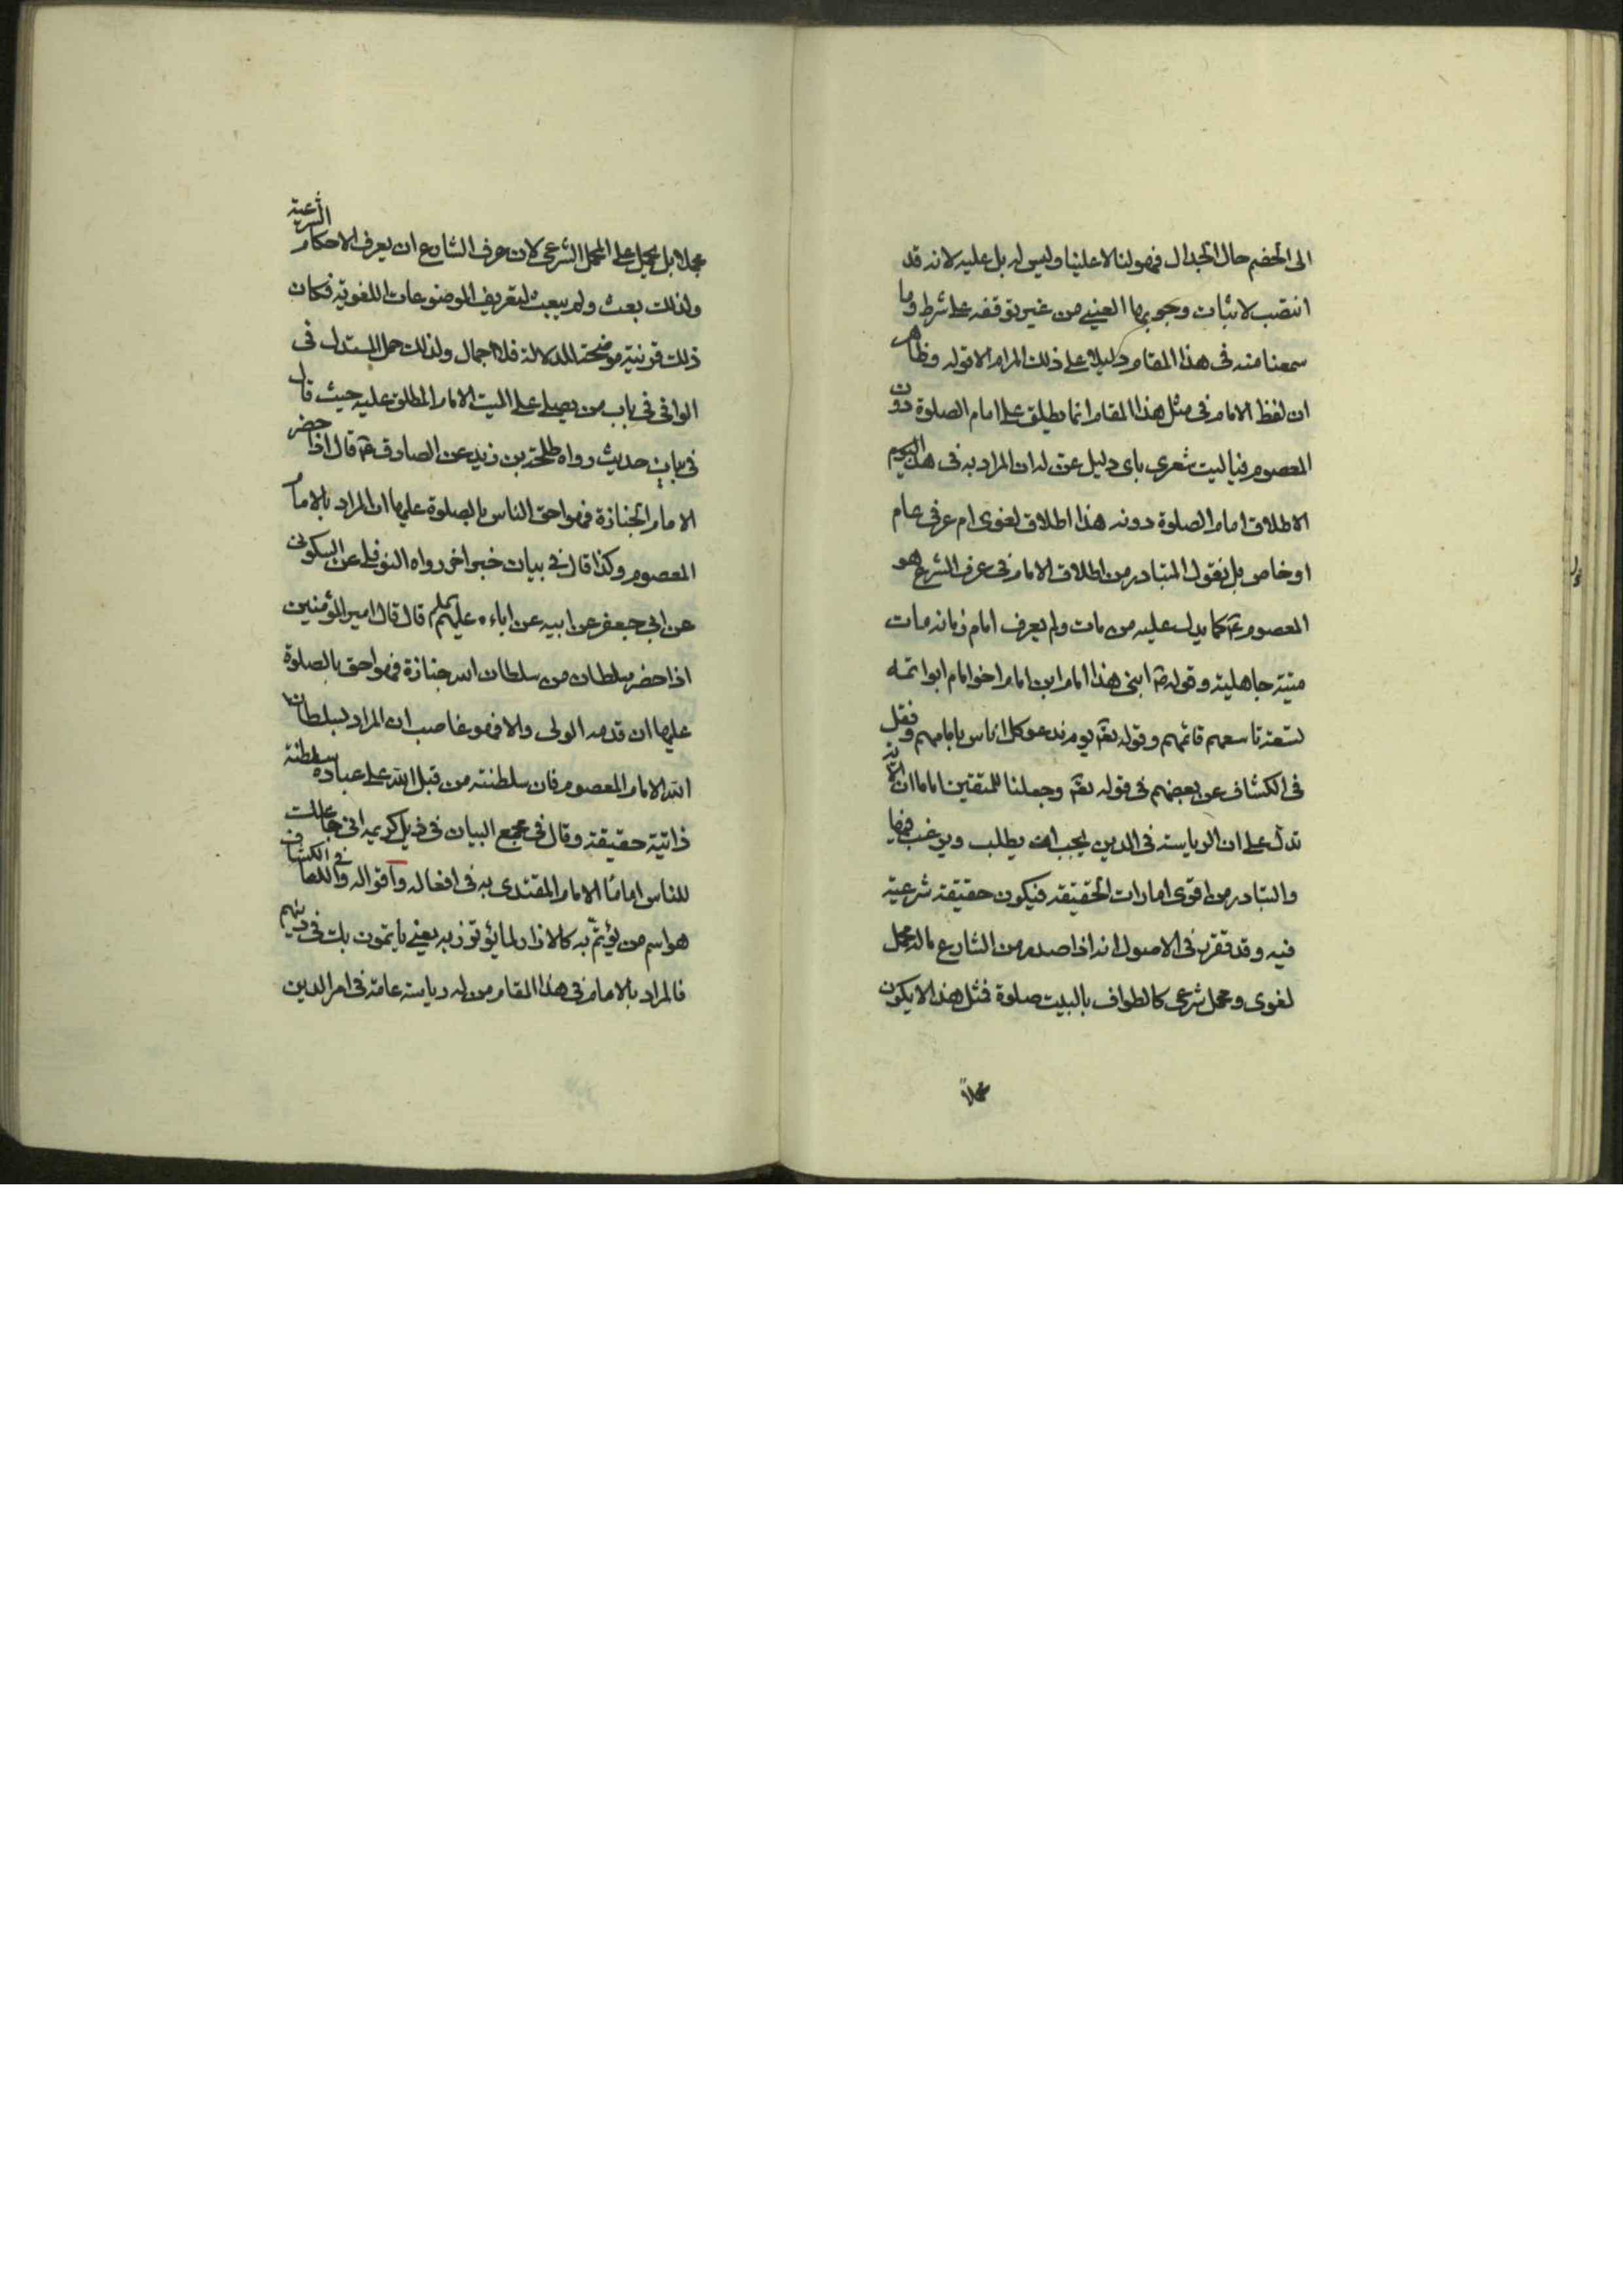 الى الخصم حال الجدال فهو لنا لا علينا وليس له بل عليه لانه قد
انتصب لاثبات وجوبها العينى من غير توقفه على شرط وما
سمعنا منه فى هذا المقام دليلا على ذلك المرام الا قوله وظاهر
ان لفظ الامام فى مثل هذا المقام انما يطلق على امام الصلوة دون
المعصوم فياليت شعرى باى دليل عن له ان المراد به فى هذا
الاطلاق امام الصلوة دونه هذا اطلاق لغوى ام عرفى عام
او خاص بل نقول المتبادر من اطلاق الامام فى عرف الشرع هو
المعصوم ع كما يدل عليه من مات ولم يعرف امام زمانه مات
ميتة جاهلية وقوله ص ابنى هذا امام ابن امام اخو امام ابو ائمه
تسعة تاسعهم قائمهم وقوله تعالى يوم ندعو كل اناس بامامهم ونقل
فى الكشاف عن بعضهم فى قوله تعالى وجعلنا للمتقين اماما ان الاية
تدل على ان الرياسة فى الدين يجب ان يطلب ويرغب فيها
والتبادر من اقوى امارات الحقيقة فيكون حقيقة شرعية
فيه وقد تقرر فى الاصول انه اذا صدر من الشارع ماله محمل
لغوى ومحمل شرعى كالطواف بالبيت صلوة فمثل هذا لا يكون
مجملا
مجملا بل يحمل على المحمل الشرعى لان عرف الشارع ان يعرف الاحكام الشرعية
ولذلك بعث ولم يبعث لتعريف الموضوعات اللغوية فكان
ذلك قرينة موضحة للدلالة فلا اجمال ولذلك حمل المستدل فى
الوافى فى باب من يصلى على الميت الامام المطلق عليه حيث قال
فى بيان حديث رواه طلحة بن زيد عن الصادق ع قال اذا حضر
الامام الجنازة فهو احق الناس بالصلوة عليها ان المراد بالامام
المعصوم وكذا قال فى بيان خبر اخر رواه النوفلى عن السكونى
عن ابى جعفر عن ابيه عن اباءه عليهم قال قال امير المؤمنين
اذا حضر سلطان من سلطان الله جنازة فهو احق بالصلوة
عليها ان قدمه الولى والا فهو غاصب ان المراد بسلطان
الله الامام المعصوم فان سلطنته من قبل الله على عباده سلطنة
ذاتية حقيقة وقال فى مجمع البيان فى ذيل كريمه انى جاعلك
للناس اماما الامام المقتدى به فى افعاله واقواله وفى الكشاف
هو اسم من يؤتم به كالازار لما يؤتزر به يعنى يأتمون بك فى دينهم
فالمراد بالامام فى هذا المقام من له رياسة عامة فى امر الدين